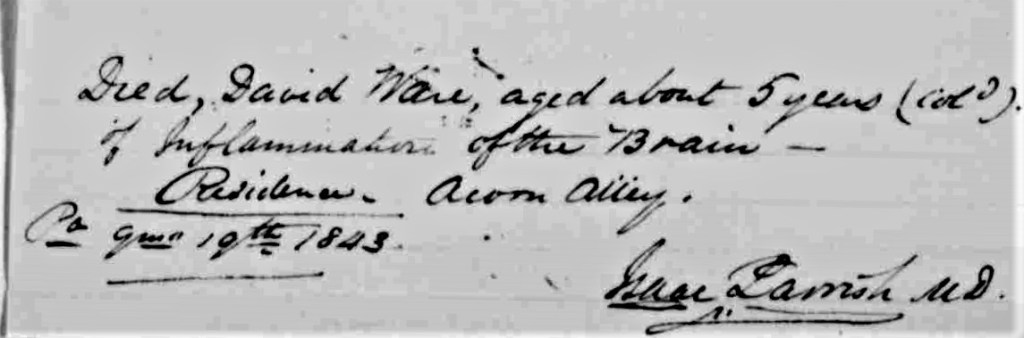 Died, David Ware, aged about 5 years (Col^d).
of Inflammation of the Brain —
Residence. Acorn Alley.
Pa 9mo 19th 1843.
Isaac Parrish M.D.